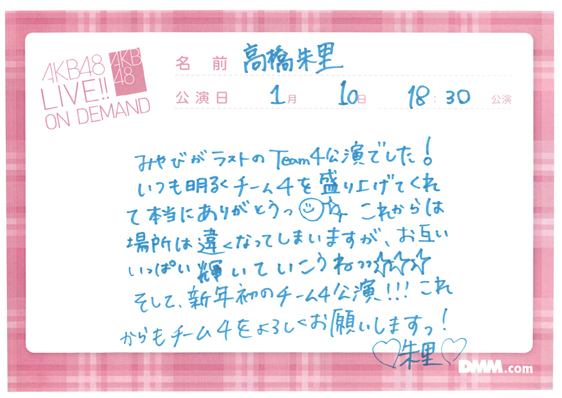 AKB48
LIVE!!
ON DEMAND
AKB
48
名 前 高橋朱里
公演日 1月 10日 18:30 公演
みやびがラストのTeam4公演でした!
いつも明るくチーム4を盛り上げてくれ
て本当にありがとうっ これからは
場所は遠くなってしまいますが、お互い
いっぱい輝いていこうねっっ☆☆☆
そして、新年初のチーム4公演!!! これ
からもチーム4をよろしくお願いしますっ!
♡朱里♡
DMM.com